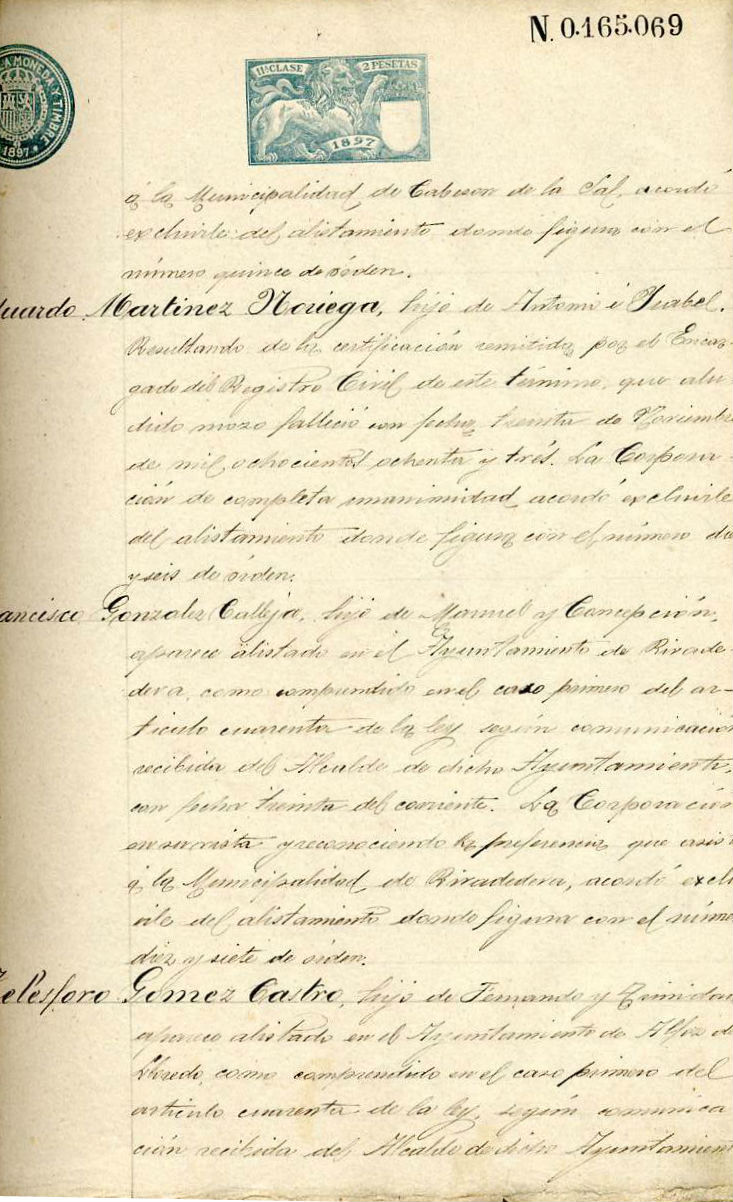 N. 0.165.069
LA MONEDA Y TIMBRE
1897
11ª CLASE
2 PESETAS
1897
á la Municipalidad de Cabezon de la Sal, acordó
excluirle del alistamiento donde figura con el
número quince de órden.
duardo Martinez Noriega, hijo de Antonio é Isabel.
Resultando de la certificación remitida por el Encar-
gado del Registro Civil de este término, que alu-
dido mozo falleció con fecha treinta de Noviembre
de mil ochocientos ochenta y trés. La Corpora-
ción de completa unanimidad acordó excluirle
del alistamiento donde figura con el número die
y seis de órden.
ancisco Gonzalez Calleja, hijo de Manuel y Concepción,
aparece alistado en el Ayuntamiento de Rivade-
deva, como comprendido en el caso primero del ar-
tículo cuarenta de la ley según comunicación
recibida del Alcalde de dicho Ayuntamiento,
con fecha treinta del corriente. La Corporación
en su vista y reconociendo la preferencia que asist
á la Municipalidad de Rivadedeva, acordó exclu
irle del alistamiento donde figura con el núme
diez y siete de órden.
Telesforo Gomez Castro, hijo de Fernando y Trinidad
aparece alistado en el Ayuntamiento de Alfoz de
Lloredo, como comprendido en el caso primero del
artículo cuarenta de la ley, según comunica
ción recibida del Alcalde de dicho Ayuntamient